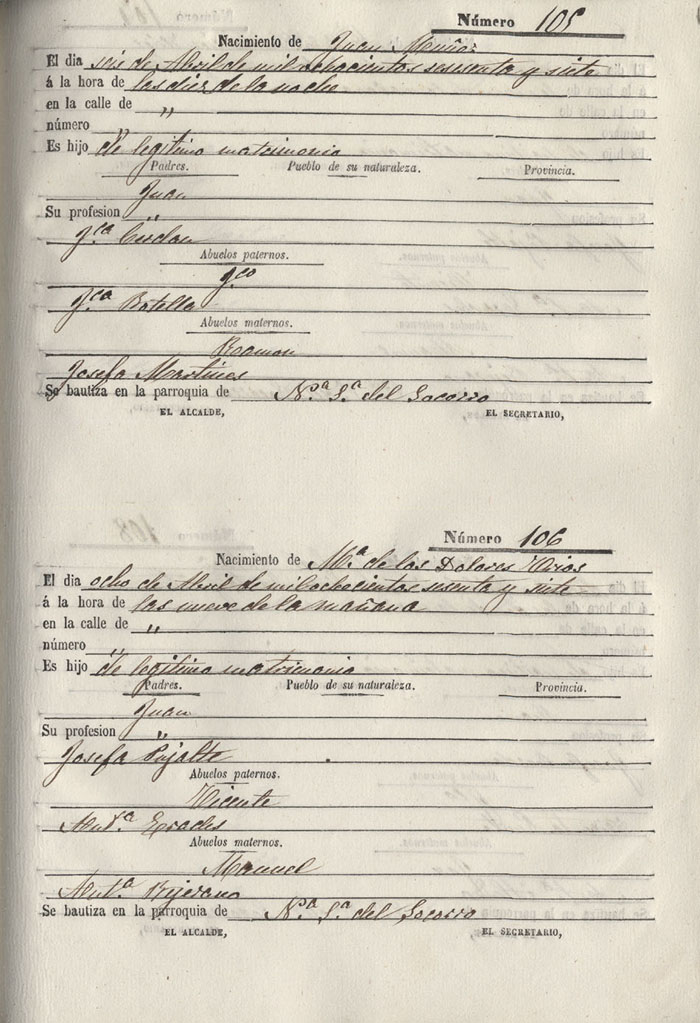 Número 105
Nacimiento de Juan Muñoz
El dia seis de Abril de mil ochocientos sesenta y siete
á la hora de las diez de la noche
en la calle de "
número "
Es hijo de legitimo matrimonio
Padres. Pueblo de su naturaleza. Provincia.
Juan
Su profesion "
Fca
Abuelos paternos.
Fco
Fca Botella
Abuelos maternos.
Ramon
Josefa Martines
Se bautiza en la parroquia de Na. Sa. del Socorro
EL ALCALDE, EL SECRETARIO,
Número 106
Nacimiento de Ma. de los Dolores
El dia ocho de Abril de mil ochocientos sesenta y siete
á la hora de las nueve de la mañana
en la calle de "
número "
Es hijo de legitimo matrimonio
Padres. Pueblo de su naturaleza. Provincia.
Juan
Su profesion "
Josefa Pujalte
Abuelos paternos.
Vicente
Anta.
Abuelos maternos.
Manuel
Anta. Bejerano
Se bautiza en la parroquia de Na. Sa. del Socorro
EL ALCALDE, EL SECRETARIO,